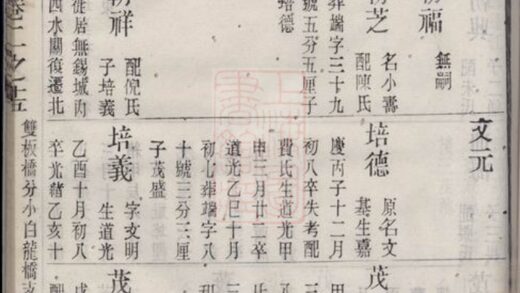 文元
福 無嗣
芝 名小壽
配陳氏
葬端字三十九
號五分五厘子
培德
祥 配倪氏
子培義
徙居無錫城內
西水關復遷北
培德 原名文
基生嘉
慶丙子十二月
初八卒失考配
費氏生道光甲
申三月廿二卒
道光乙巳十月
初七葬端字八
十號三分三厘
子茂盛
培義 字文明
生道光
乙酉十月初八
卒光緒乙亥十
茂
茂
卷二之五
雙板橋分小白龍橋支